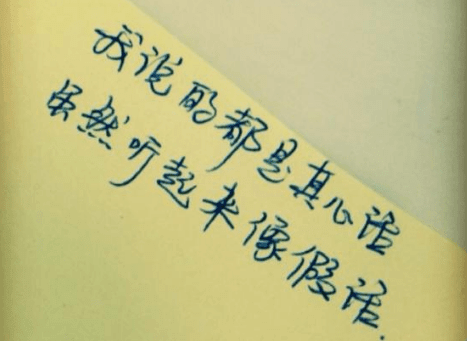 我说的都是真心话
虽然听起来像假话.